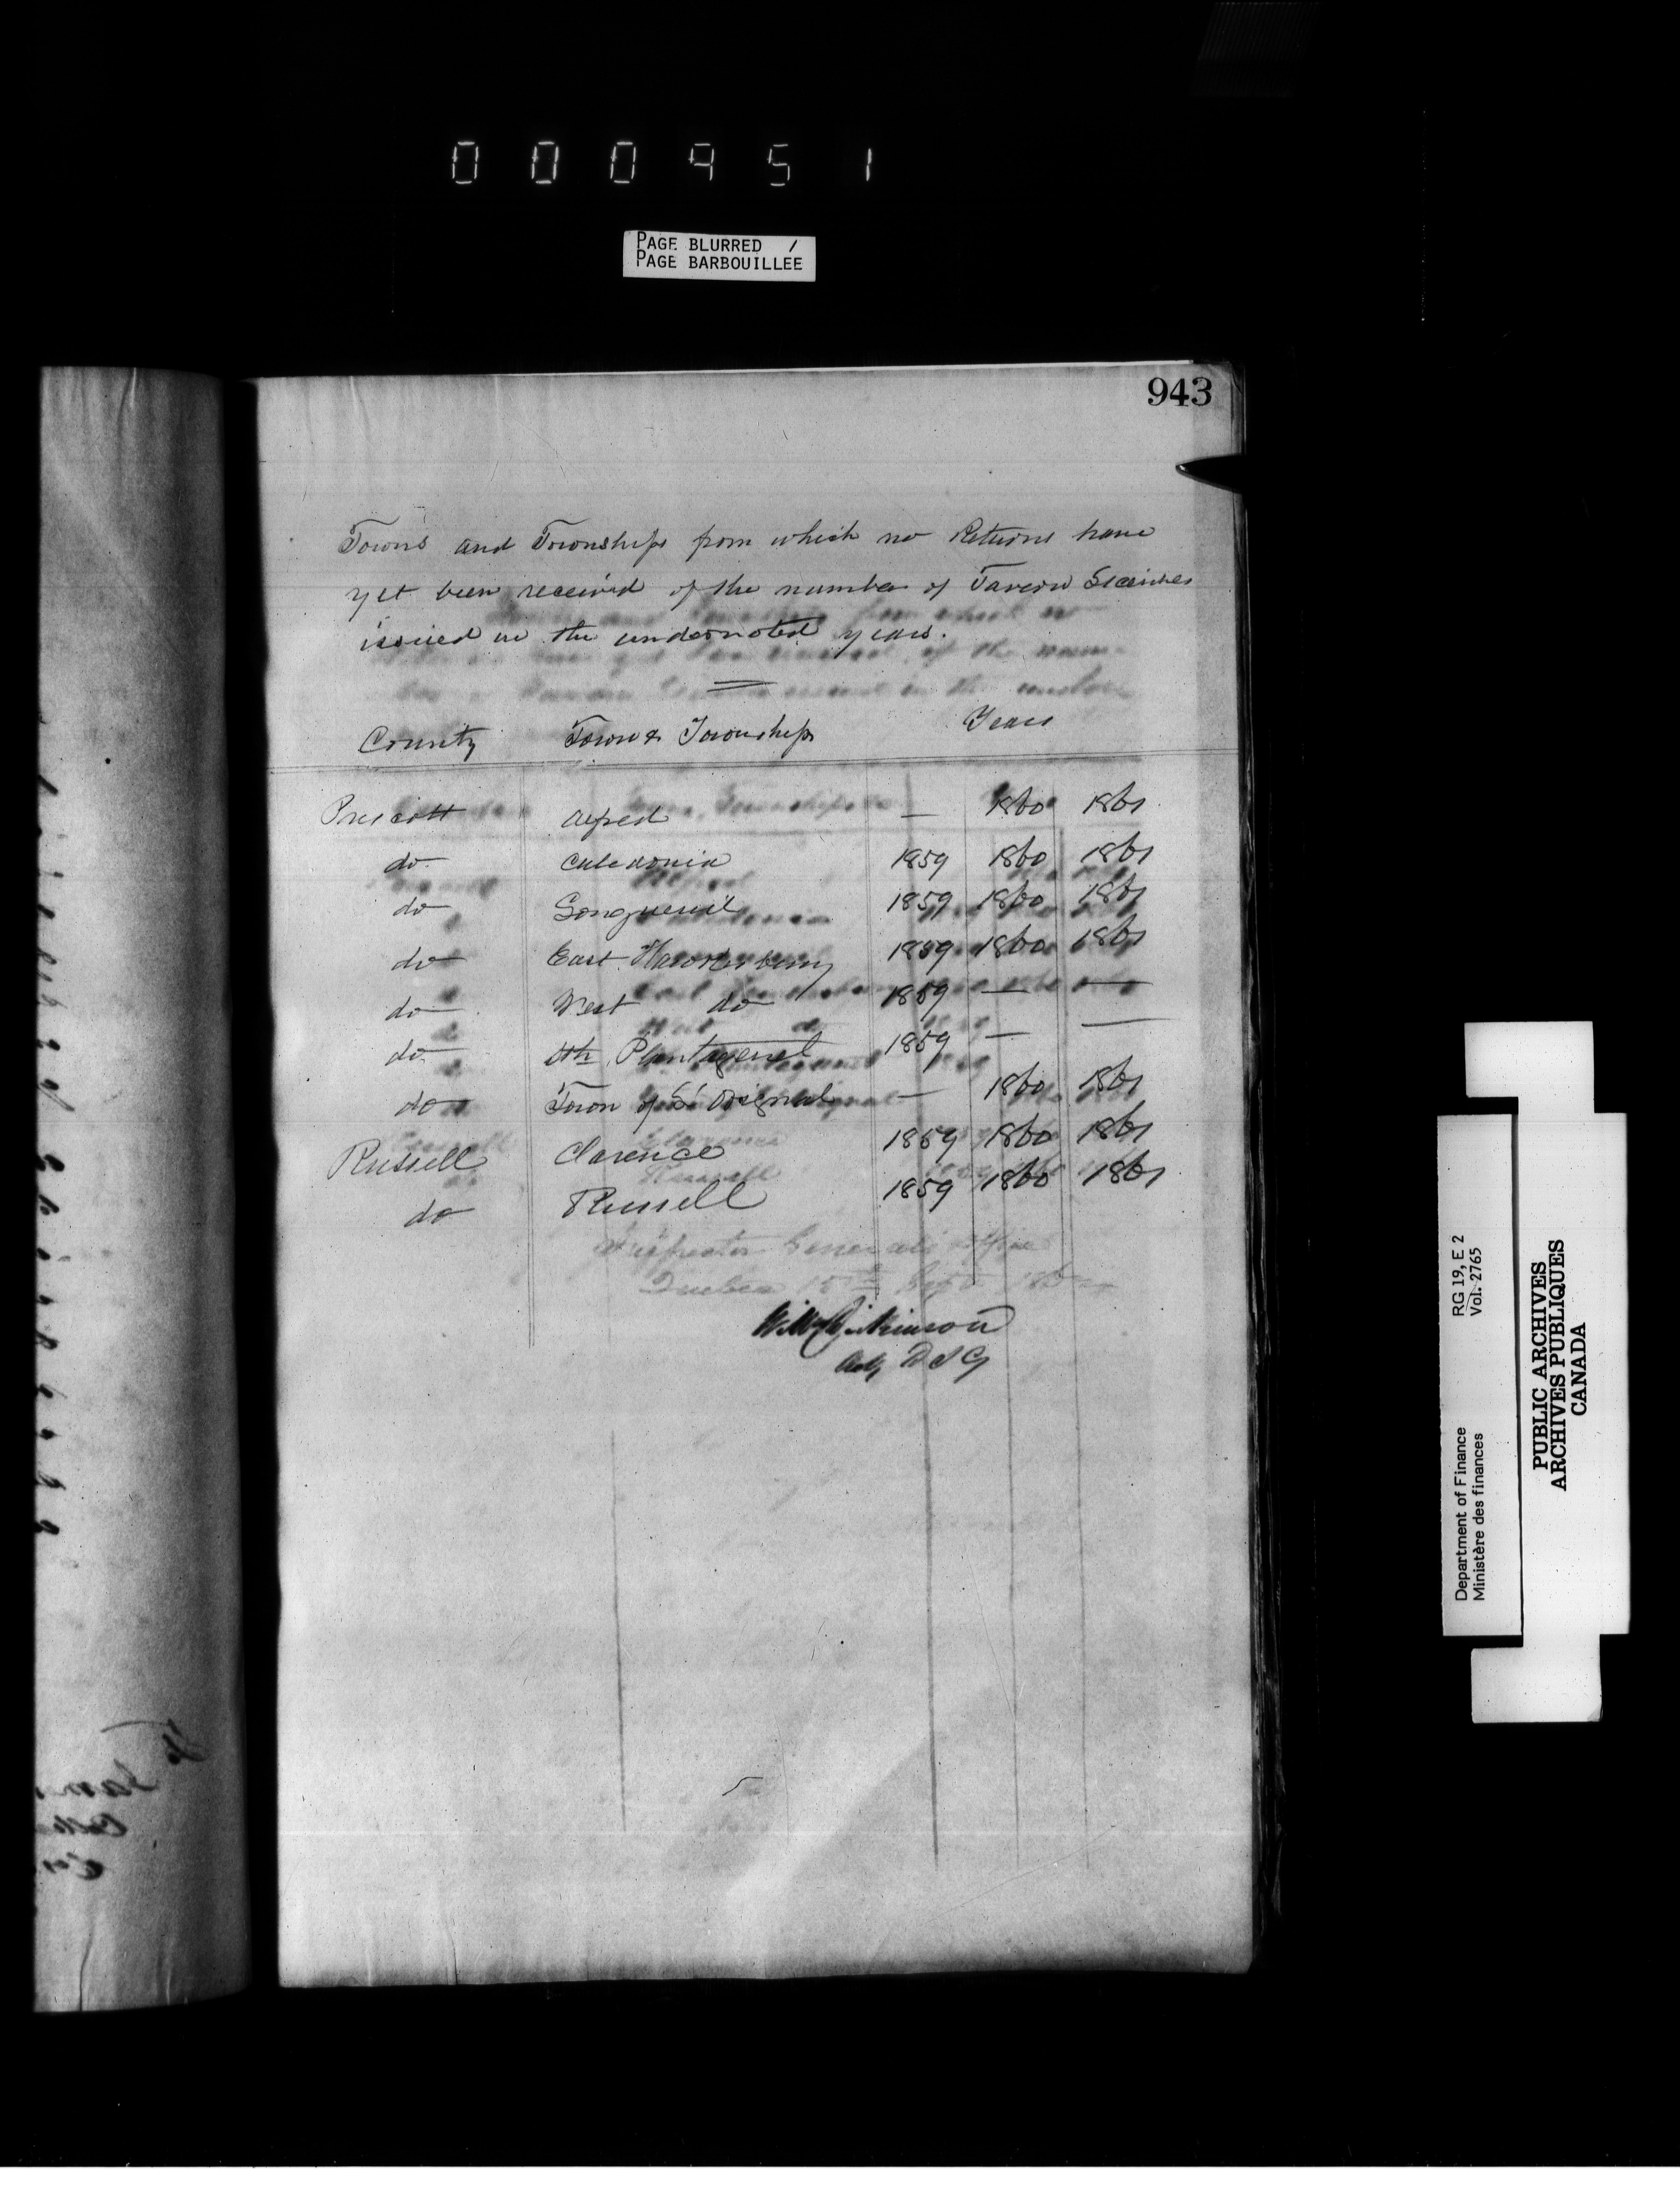 000951
PAGE BLURRED /
PAGE BARBOUILLÉE
943
Towns and Townships from which no Returns have
yet been received of the number of Tavern Licenses
issued in the undernoted years.
County Town & Townships Years
Prescott Alfred — 1860 1861
do Caledonia 1859 1860 1861
do Longueuil 1859 1860 1861
do East Hawkesbury 1859 1860 1861
do West do 1859 — —
do Sth Plantagenet 1859 — —
do Town of L'Orignal — 1860 1861
Russell Clarence 1859 1860 1861
do Russell 1859 1860 1861
Inspector General's Office
Quebec 15th Sept
Wm Dickinson
Actg D I G
Department of Finance RG 19, E 2
Ministère des finances Vol. 2765
PUBLIC ARCHIVES
ARCHIVES PUBLIQUES
CANADA